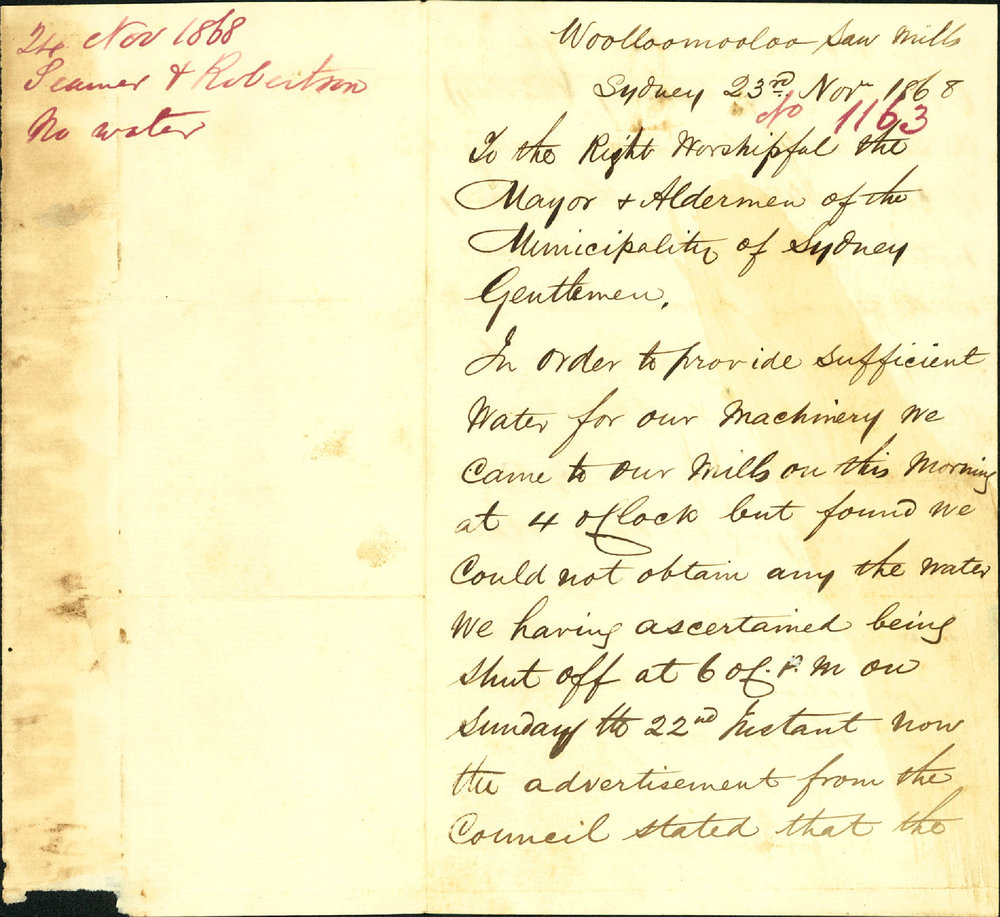 24 Nov 1868
Seamer & Robertson
No water
Woolloomooloo Saw Mills
Sydney 23rd Nov 1868
No 1163
To the Right Worshipful the
Mayor & Aldermen of the
Municipality of Sydney
Gentlemen,
In order to provide sufficient
Water for our Machinery we
Came to our Mills on this Morning
at 4 oClock but found we
Could not obtain any the water
we having ascertained being
shut off at 6 oC. P.M on
Sunday the 22nd Instant now
the advertisement from the
Council stated that the